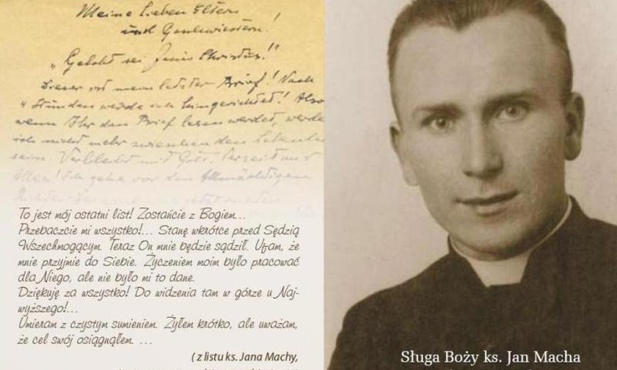 Meine lieben Eltern
und Geschwistern!
"Gelobt sei Jesus Christus!"
Dieser ist mein letzter Brief! Nach
4 Stunden werde ich hingerichtet! Also
wenn Ihr den Brief lesen werdet, werde
ich nicht mehr zwischen den Lebenden
sein. Verbleibt mit Gott! Verzeiht mir
Alles! Ich gehe vor den Allmächtigen
To jest mój ostatni list! Zostańcie z Bogiem...
Przebaczcie mi wszystko!... Stanę wkrótce przed Sędzią
Wszechmogącym. Teraz On mnie będzie sądził. Ufam, że
mnie przyjmie do Siebie. Życzeniem moim było pracować
dla Niego, ale nie było mi to dane.
Dziękuję za wszystko! Do widzenia tam w górze u Naj-
wyższego!...
Umieram z czystym sumieniem. Żyłem krótko, ale uważam,
że cel swój osiągnąłem. ...
( z listu ks. Jana Machy,
Sługa Boży ks. Jan Macha